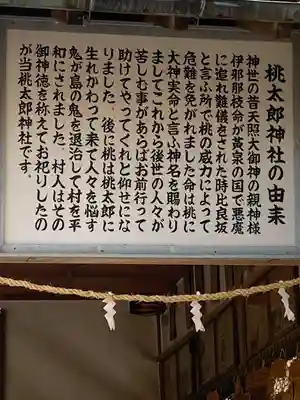 桃太郎神社の由来
神世の昔天照大御神の親神様
伊邪那岐命が黄泉の国で悪魔
に追れ難儀をされた時比良坂
と言ふ所で桃の威力によって
危難を免がれました命は桃に
大神実命と言ふ神名を賜わり
ましてこれから後世の人々が
苦しむ事があらばお前行って
助けてやってくれと仰せにな
りました、後に桃は桃太郎に
生れかわって来て人々を悩す
鬼が島の鬼を退治して村を平
和にされました、村人はその
御神徳を称えてお祀りしたの
が当桃太郎神社です。